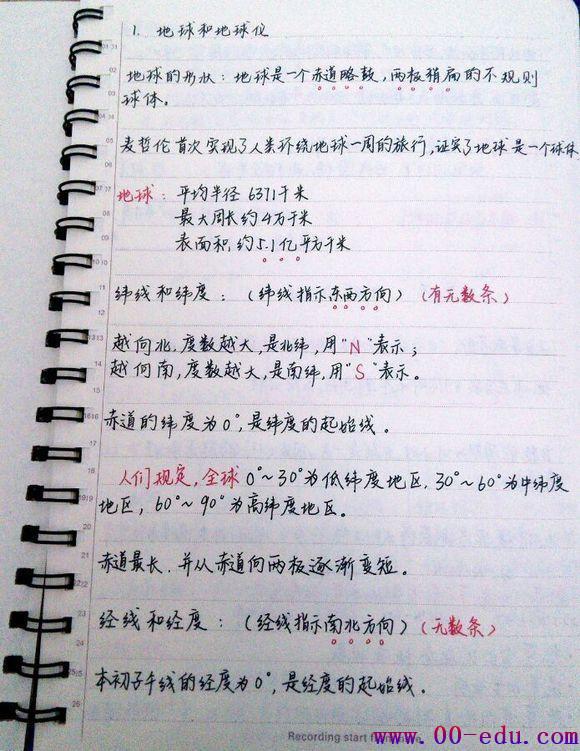 1. 地球和地球仪
地球的形状：地球是一个赤道略鼓，两极稍扁的不规则
球体。
麦哲伦首次实现了人类环绕地球一周的旅行，证实了地球是一个球体
地球：平均半径 6371千米
最大周长约4万千米
表面积，约5.1亿平方千米
纬线和纬度：（纬线指示东西方向）（有无数条）
越向北，度数越大，是北纬，用"N"表示；
越向南，度数越大，是南纬，用"S"表示。
赤道的纬度为0°，是纬度的起始线。
人们规定，全球0°~30°为低纬度地区，30°~60°为中纬度
地区，60°~90°为高纬度地区。
赤道最长，并从赤道向两极逐渐变短。
经线和经度：（经线指示南北方向）（无数条）
本初子午线的经度为0°，是经度的起始线。
Recording start f
www.00-edu.com